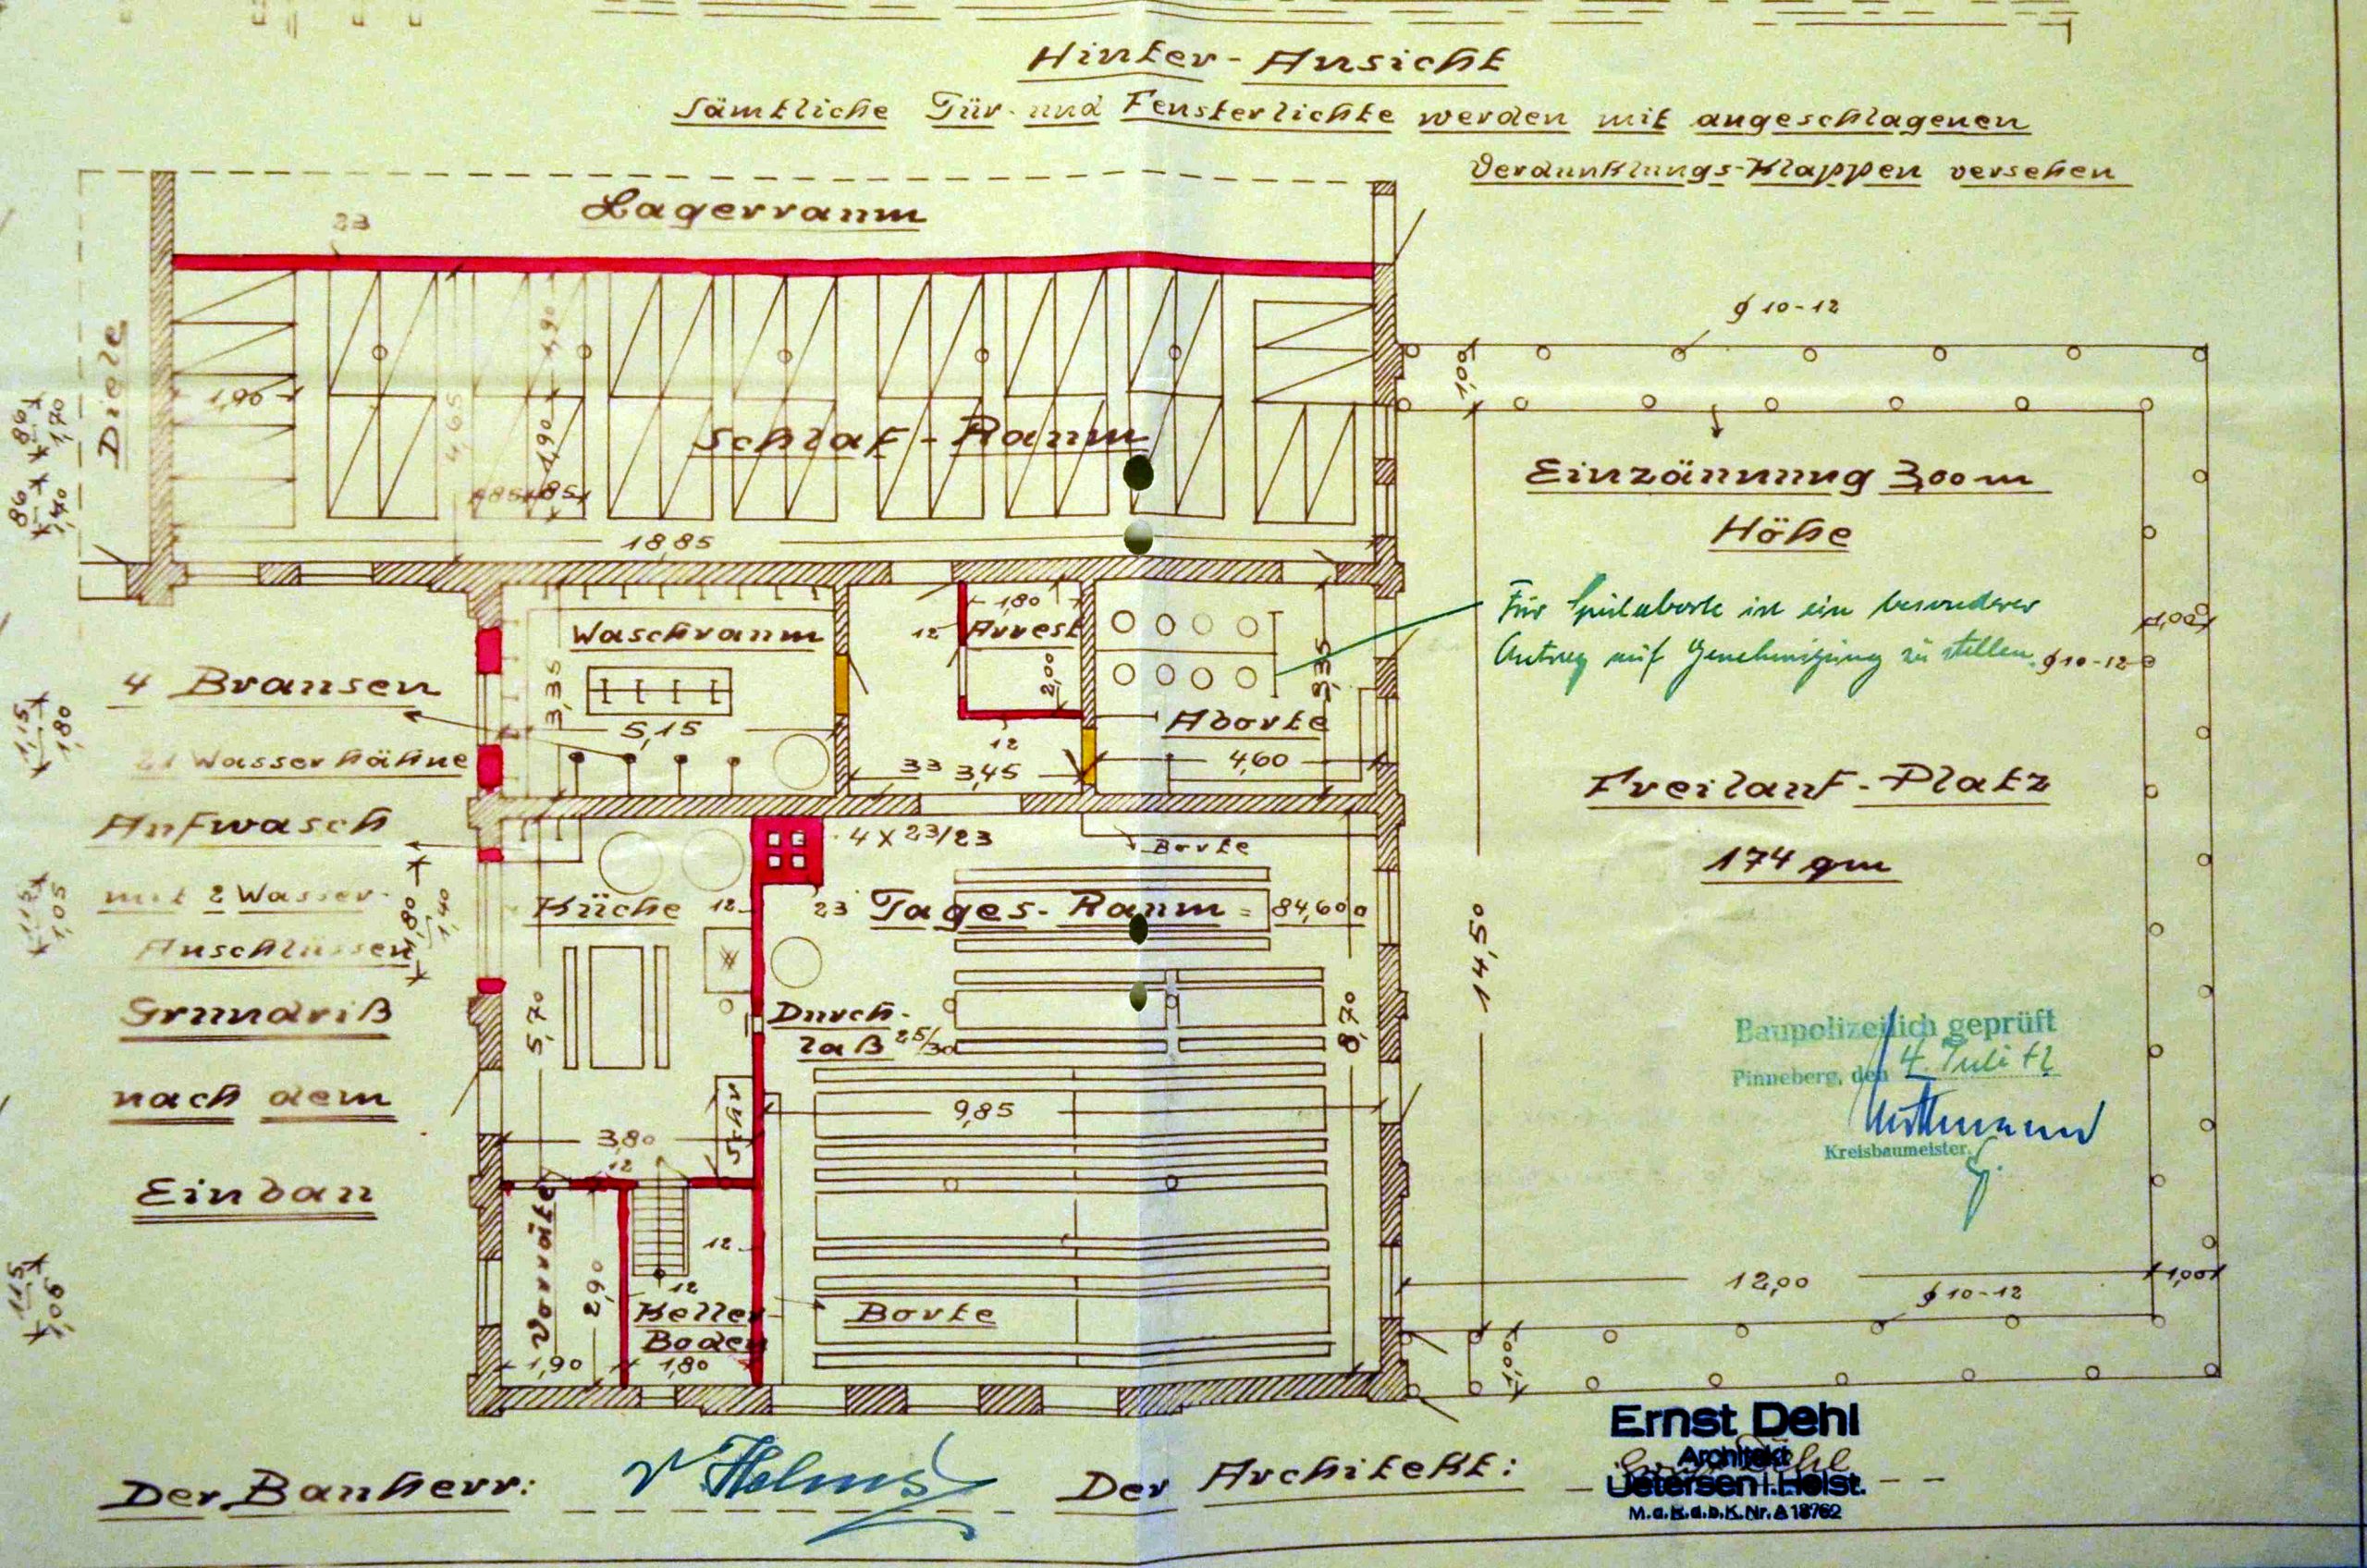 Hinter-Ansicht
Sämtliche Tür- und Fensterlichte werden mit angeschlagenen
Verdunklungs-Klappen versehen
23
Lagerraum
Diele
1,90
4,65
1,90
1,90
85
85
Schlaf-Raum
18,85
ϕ 10-12
1,00
Einzäunung 3,00 m
Höhe
Für Spülaborte ist ein besonderer
Antrag auf Genehmigung zu stellen.
1,00
ϕ 10-12
86
1,70
86
1,40
Waschraum
3,35
5,15
12
1,80
Arrest
2,00
12
33
3,45
Aborte
3,35
4,60
4 Brausen
21 Wasserhähne
Aufwasch
mit 2 Wasser-
Anschlüssen
1,15
1,80
1,15
1,05
1,80
1,40
Freilauf-Platz
174 qm
4 X 23/23
Borte
Küche
12
23
Tages-Raum = 84,60
5,70
Durch-
laß 25/30
8,70
14,50
Grundriß
nach dem
Einbau
9,85
Schr
3,80
12
Vorräte
2,90
12
12
Keller-
Boden
1,90
1,80
Borte
1,15
1,05
Baupolizeilich geprüft
Pinneberg, den 4. Juli 42
Kreisbaumeister
12,00
1,00
ϕ 10-12
1,00
Der Bauherr:
Helms
Der Architekt:
Ernst Dehl
Architekt
Uetersen i. Holst.
M.d.R.d.b.K.Nr.A 18762